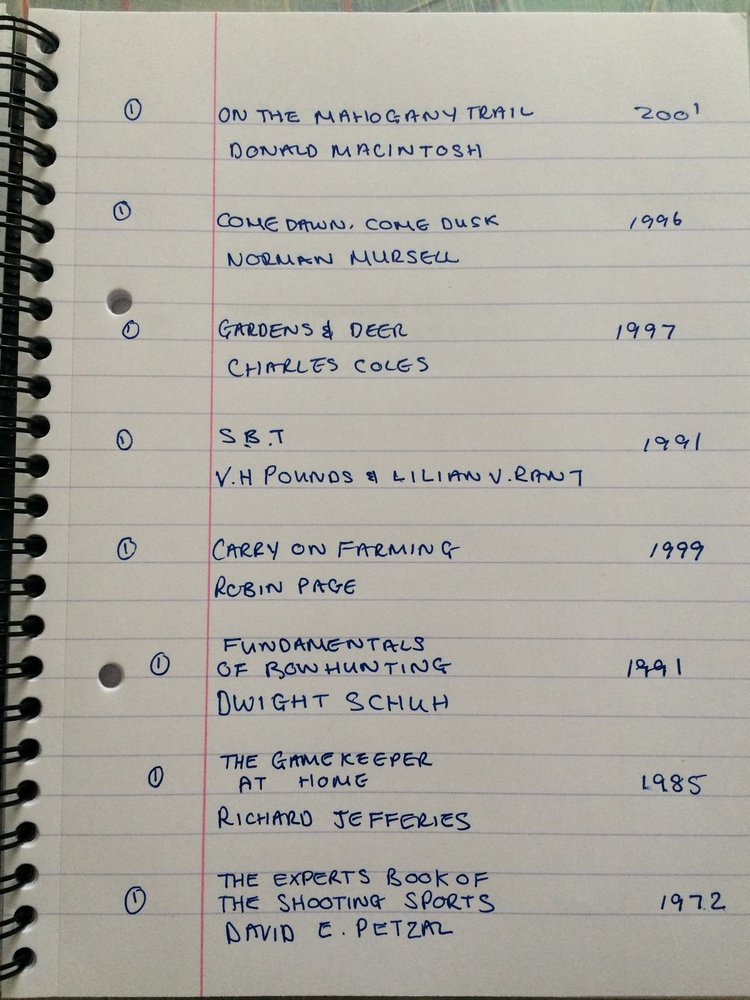 ① ON THE MAHOGANY TRAIL 2001
DONALD MACINTOSH
① COME DAWN, COME DUSK 1996
NORMAN MURSELL
① GARDENS & DEER 1997
CHARLES COLES
① S.B.T 1991
V.H POUNDS & LILIAN V. RANT
① CARRY ON FARMING 1999
ROBIN PAGE
FUNDAMENTALS
① OF BOWHUNTING 1991
DWIGHT SCHUH
THE GAMEKEEPER
① AT HOME 1985
RICHARD JEFFERIES
THE EXPERTS BOOK OF
① THE SHOOTING SPORTS 1972
DAVID E. PETZAL